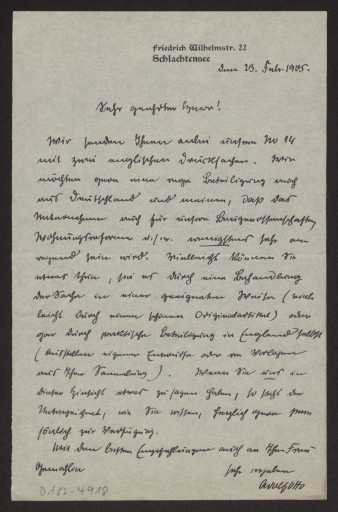 Friedrich Wilhelmstr. 22
Schlachtensee
den 23. Febr. 1905.
Sehr geehrter Herr!
Wir senden Ihnen anbei unsere No 14
mit zwei englischen Drucksachen. Wir
möchten gern eine rege Beteiligung auch
aus Deutschland und meinen, daß das
Unternehmen auch für unsere Baugenossenschaften,
Wohnungsreform u.s.w. wenigstens sehr an
regend sein wird. Vielleicht können Sie
etwas thun, sei es durch eine Behandlung
der Sache in einer geeigneten Weise (viel
leicht durch einen schönen Originalartikel) oder
gar durch praktische Beteiligung in England selbst
(Ausstellen eigener Entwürfe oder von Vorlagen
aus Ihrer Sammlung). Wenn Sie uns in
dieser Hinsicht etwas zu sagen haben, so steht der
Unterzeichnet, wie Sie wissen, herzlich gern zum
persönlich zur Verfügung.
Mit den besten Empfehlungen auch an Ihre Frau
Gemahlin
sehr ergeben
Adolf Otto
D182-4918